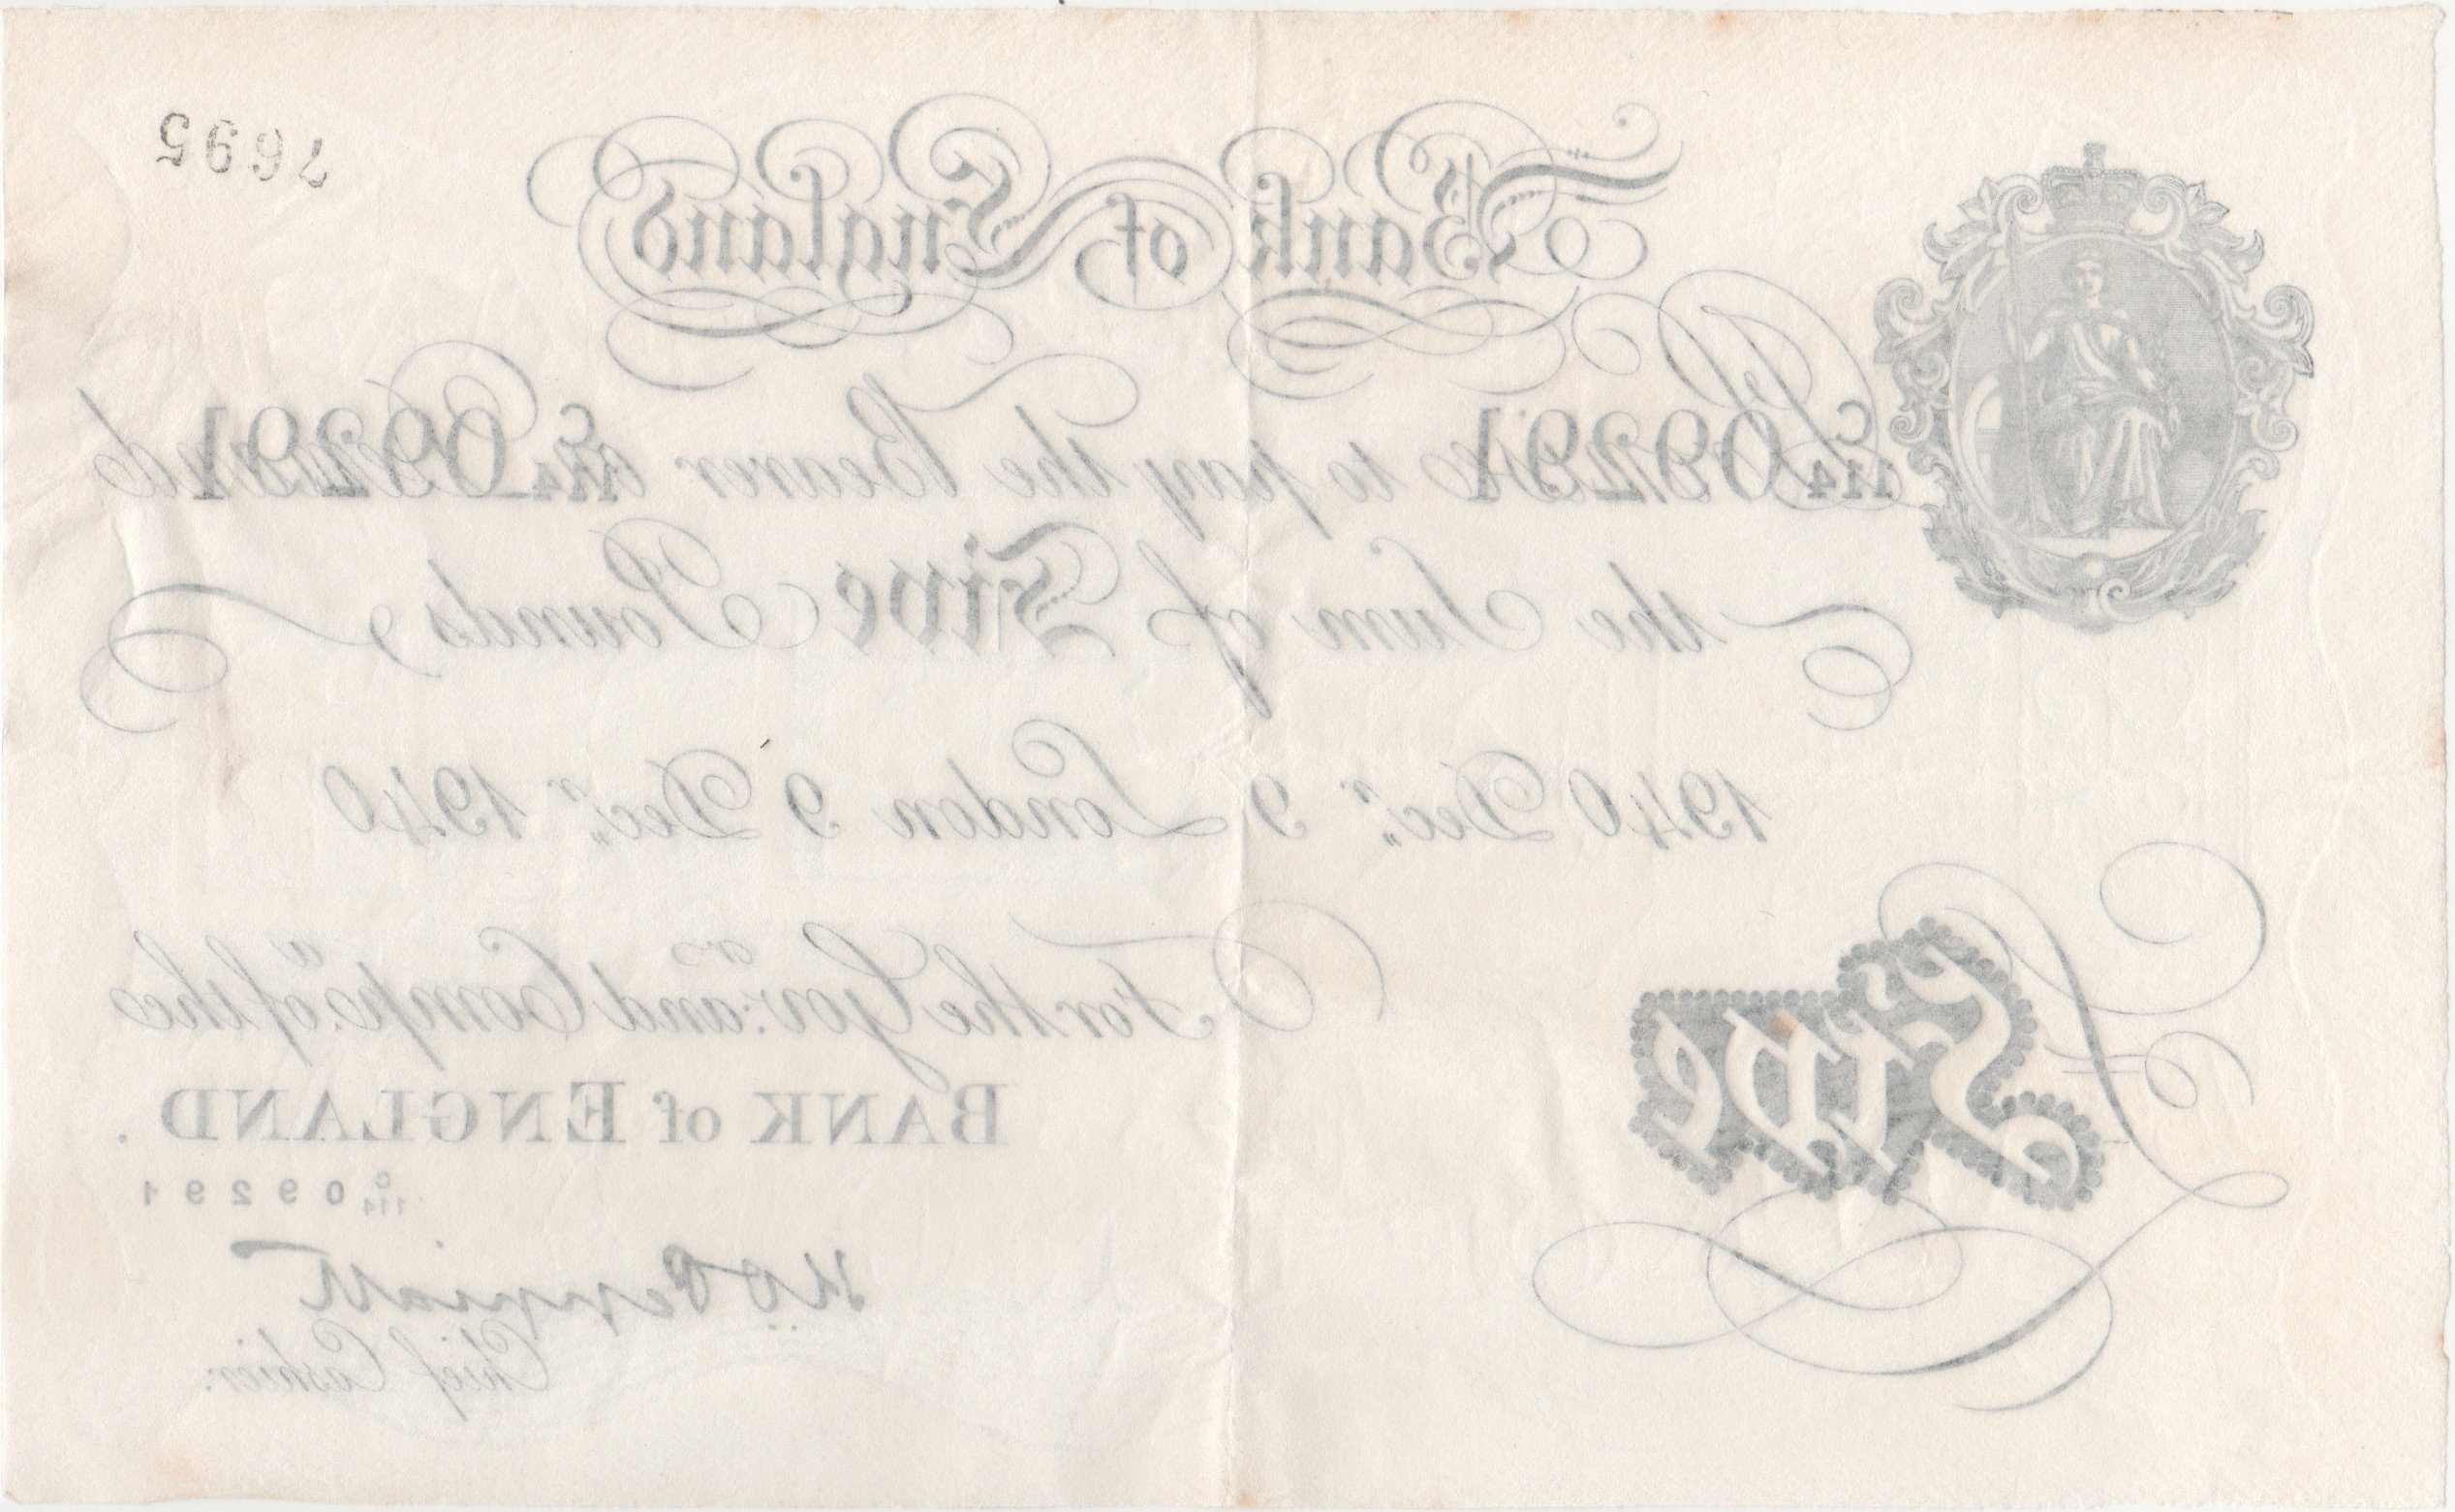 7695
Bank of England
C 114 09291 C 114 09291
I Promise to pay the Bearer on Demand
the Sum of Five Pounds
1940 Decr. 9 London 9 Decr. 1940
For the Govr: and Compa. of the
BANK of ENGLAND.
C 114 09291
£Five
K O Peppiatt
Chief Cashier.